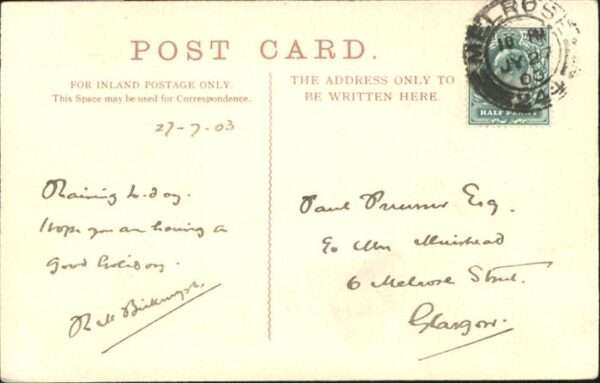 POST CARD.
FOR INLAND POSTAGE ONLY.
This Space may be used for Correspondence.
THE ADDRESS ONLY TO
BE WRITTEN HERE.
MELROSE
JY 27
03
24
HALF PENNY
27-7-03
Raining to-day.
Hope you are having a
Good holiday.
Paul
Esq.
c/o Mrs Muirhead
6 Melrose Street.
Glasgow.